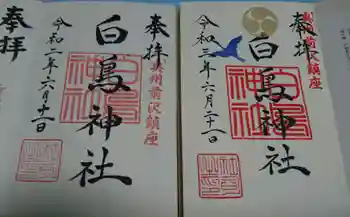 奉拝
奥州前沢鎮座
白鳥神社
令和三年六月二十一日
奉拝
奥州前沢鎮座
白鳥神社
令和二年六月十二日
奉拝